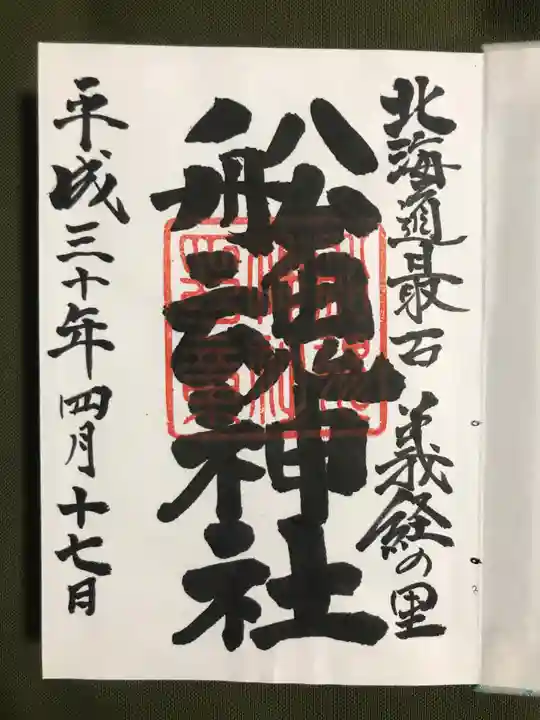 北海道最古 義経の里
船魂神社
平成三十年四月十七日